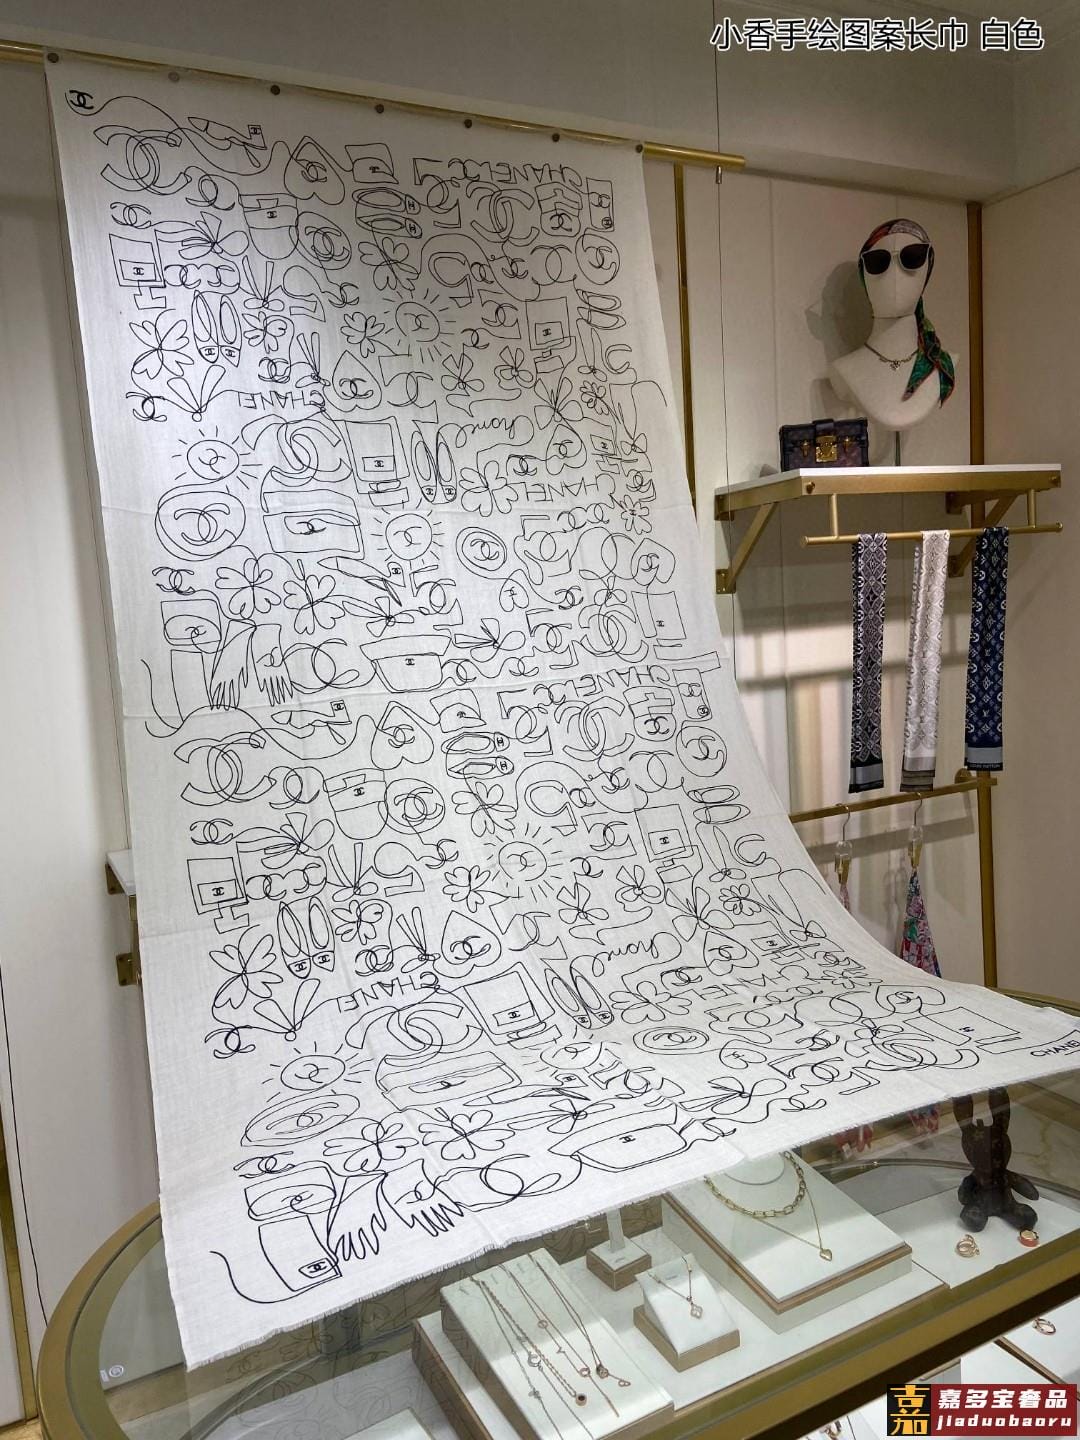 小香手绘图案长巾 白色
CHANEL
CHANEL
Chanel
CHANEL
CHANEL
CHANEL
Chanel
CHANEL
5
5
5
嘉
嘉多宝奢品
jiaduobaoru